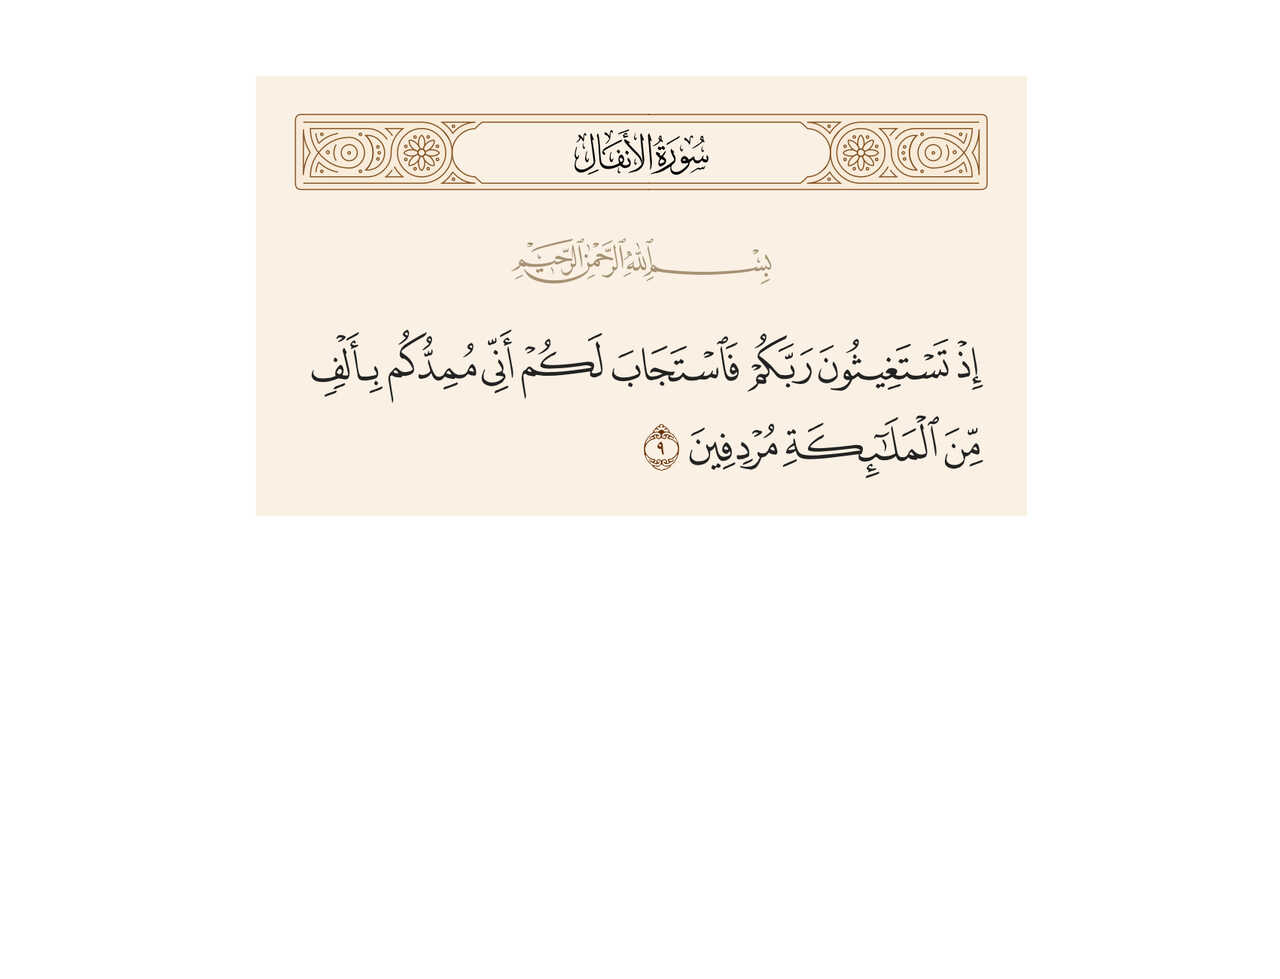 سُورَةُ الأَنفَالِ
بِسْمِ اللَّهِ الرَّحْمَٰنِ الرَّحِيمِ
إِذْ تَسْتَغِيثُونَ رَبَّكُمْ فَٱسْتَجَابَ لَكُمْ أَنِّى مُمِدُّكُم بِأَلْفٍ
مِّنَ ٱلْمَلَٰٓئِكَةِ مُرْدِفِينَ ٩